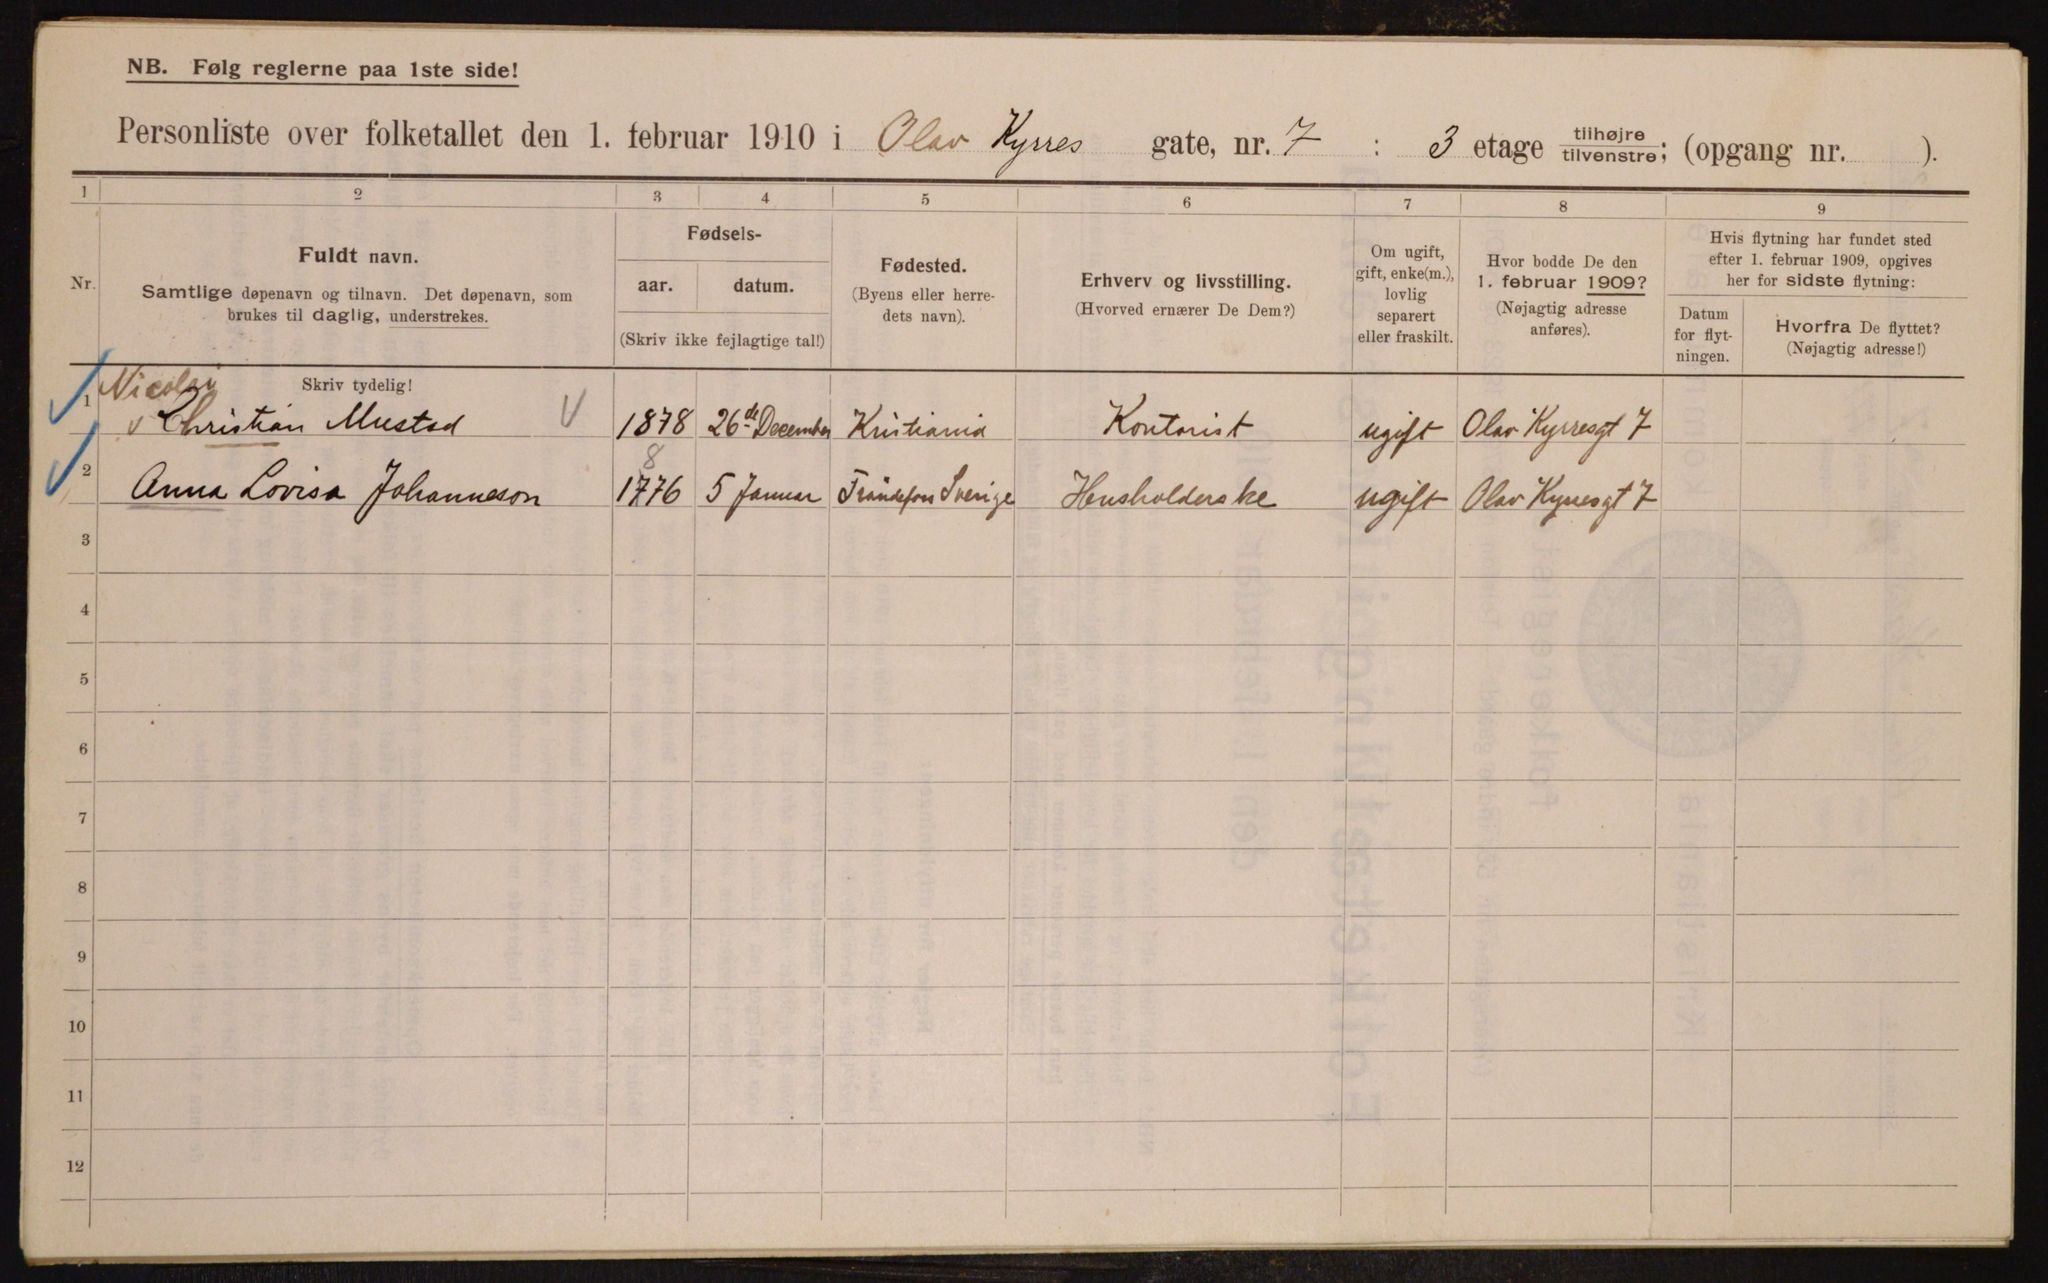 NB. Følg reglerne paa 1ste side!
Personliste over folketallet den 1. februar 1910 i Olav Kyrres gate, nr. 7 : 3 etage tilhøjre/tilvenstre; (opgang nr. ).
1 2 3 4 5 6 7 8 9
Nr.
Fuldt navn.
Samtlige døpenavn og tilnavn. Det døpenavn, som
brukes til daglig, understrekes.
Fødsels-
aar. datum.
(Skriv ikke fejlagtige tal!)
Fødested.
(Byens eller herre-
dets navn).
Erhverv og livsstilling.
(Hvorved ernærer De Dem?)
Om ugift,
gift, enke(m.),
lovlig
separert
eller fraskilt.
Hvor bodde De den
1. februar 1909?
(Nøjagtig adresse
anføres).
Hvis flytning har fundet sted
efter 1. februar 1909, opgives
her for sidste flytning:
Datum
for flyt-
ningen.
Hvorfra De flyttet?
(Nøjagtig adresse!)
Nicolai Skriv tydelig!
1 Christian Mustad 1878 26de December Kristiania Kontorist ugift Olav Kyrresgt 7
8
2 Anna Lovisa Johanneson 1776 5 Januar Sverige Husholderske ugift Olav Kyrresgt 7
3
4
5
6
7
8
9
10
11
12